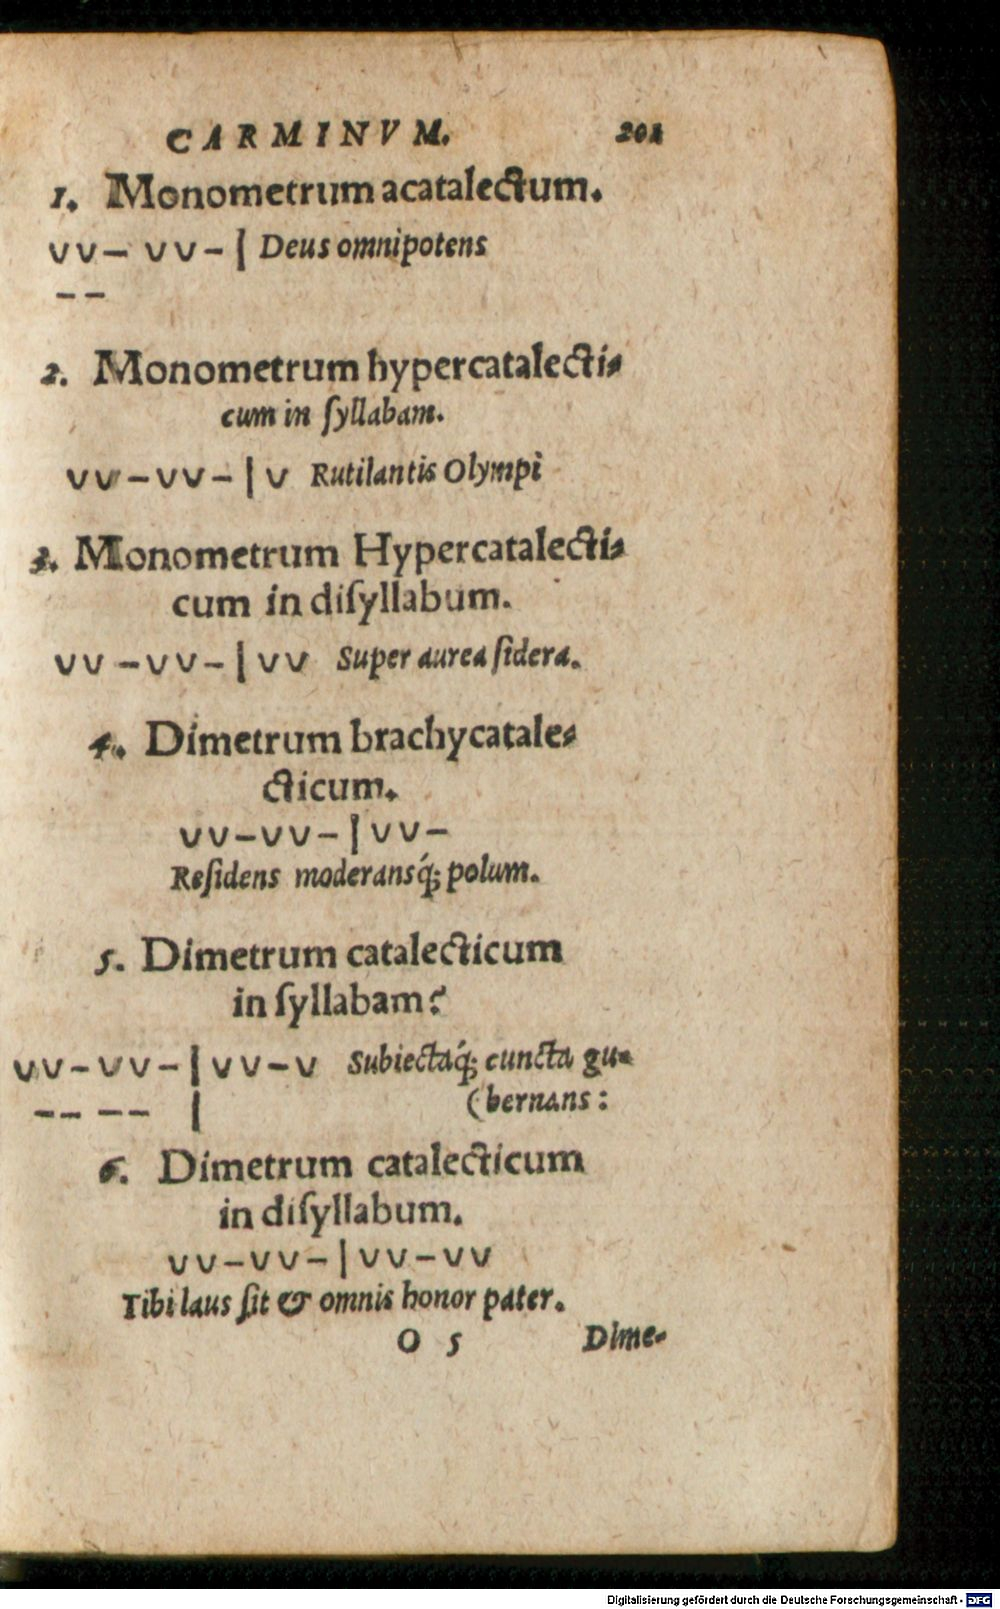 CARMINVM. 201
1. Monometrum acatalectum.
∪∪– ∪∪–| Deus omnipotens
– –
2. Monometrum hypercatalecti-
cum in ſyllabam.
∪∪–∪∪–|∪ Rutilantis Olympi
3. Monometrum Hypercatalecti-
cum in diſyllabum.
∪∪–∪∪–|∪∪ Super aurea ſidera.
4. Dimetrum brachycatale-
cticum.
∪∪–∪∪–|∪∪–
Reſidens moderansq́; polum.
5. Dimetrum catalecticum
in ſyllabam:
∪∪–∪∪–|∪∪–∪ Subiectaq́; cuncta gu-
– – – – | (bernans:
6. Dimetrum catalecticum
in diſyllabum.
∪∪–∪∪–|∪∪–∪∪
Tibi laus ſit & omnis honor pater.
O 5 Dime-
Digitalisierung gefördert durch die Deutsche Forschungsgemeinschaft - DFG